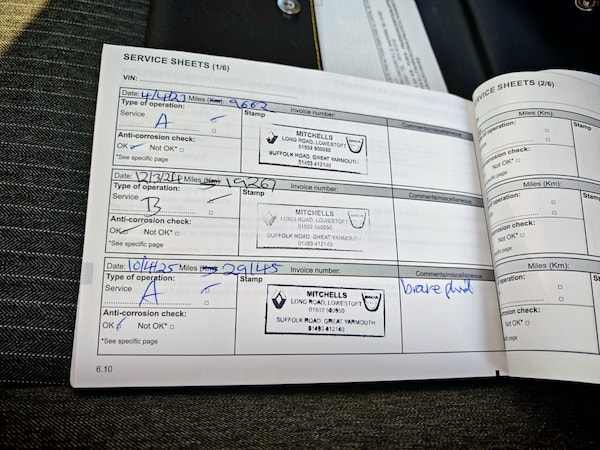 SERVICE SHEETS (1/6)
VIN:
Date: 4/4/23 Miles (Km): 9662 Invoice number: Comments/miscellaneous
Type of operation: Stamp
Service
A
MITCHELLS
LONG ROAD, LOWESTOFT
01502 500050
SUFFOLK ROAD, GREAT YARMOUTH
01493 412140
Anti-corrosion check:
OK Not OK*
*See specific page
Date: 12/3/24 Miles (Km): 19267 Invoice number: Comments/miscellaneous
Type of operation: Stamp
Service
B
MITCHELLS
LONG ROAD, LOWESTOFT
01502 500050
SUFFOLK ROAD, GREAT YARMOUTH
01493 412140
Anti-corrosion check:
OK Not OK*
*See specific page
Date: 10/4/25 Miles (Km): 29145 Invoice number: Comments/miscellaneous
Type of operation: Stamp
Service
A
brake fluid
MITCHELLS
LONG ROAD, LOWESTOFT
SUFFOLK ROAD, GREAT YARMOUTH
01493 412140
Anti-corrosion check:
OK Not OK*
*See specific page
6.10
SERVICE SHEETS (2/6)
Miles (Km):
of operation: Stamp
corrosion check:
Not OK*
specific page
Miles (Km):
of operation:
corrosion check:
Not OK*
specific page
Miles (Km):
of operation: Stamp
corrosion check:
Not OK*
specific page